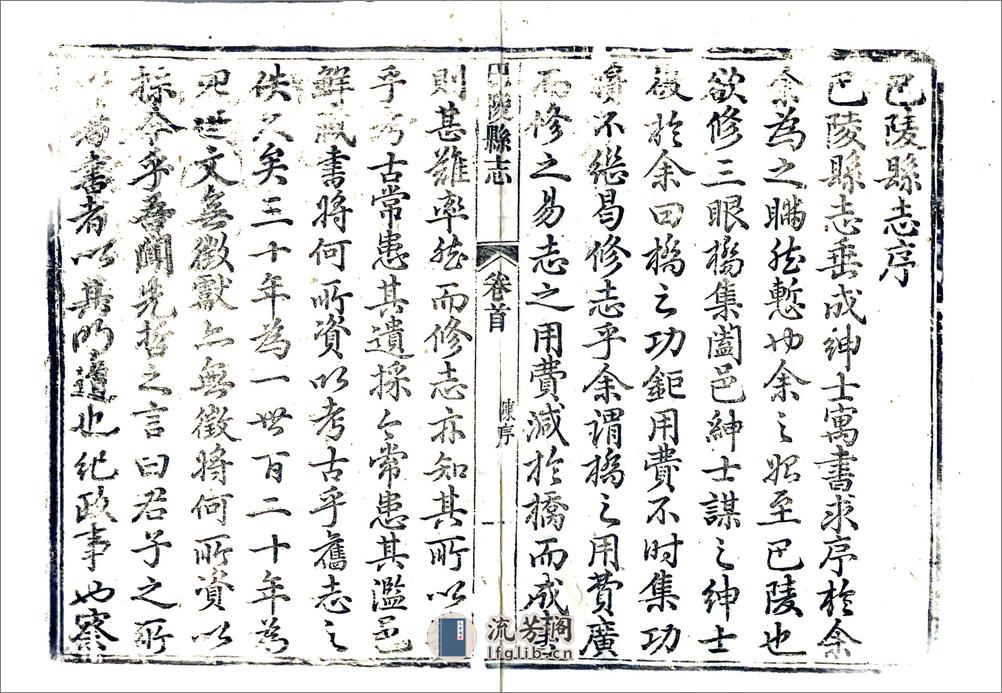 巴陵縣志序
巴陵縣志垂成紳士寓書求序於余
余為之瞞然慙也余之始至巴陵也
欲修三眼橋集闔邑紳士謀之紳士
復於余曰橋之功鉅用費不时集功
不繼曷修志乎余謂橋之用費廣
而修之易志之用費減於橋而成
巴陵縣志 卷首 陳序 一
則甚難率然而修志亦知其所以
乎考古常患其遺採今常患其濫邑
鮮成書將何所資以考古乎舊志之
佚久矣三十年為一世百二十年為
四世文無徵獻亦無徵將何所資以
採今乎吾聞先哲之言曰君子之所
書者以其明道也紀政事也察
流芳閣
lfglib.cn